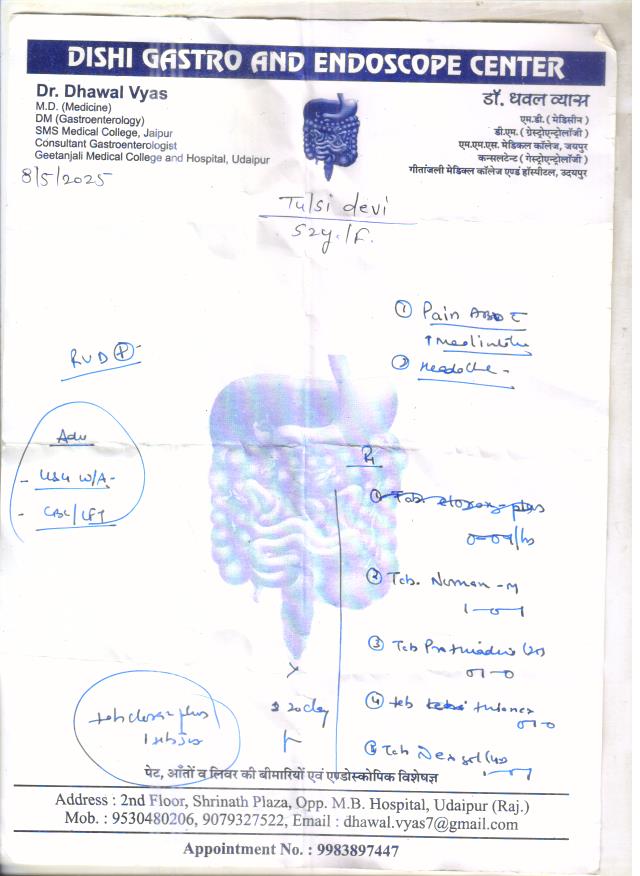 DISHI GASTRO AND ENDOSCOPE CENTER
Dr. Dhawal Vyas
M.D. (Medicine)
DM (Gastroenterology)
SMS Medical College, Jaipur
Consultant Gastroenterologist
Geetanjali Medical College and Hospital, Udaipur
डॉ. धवल व्यास
एम.डी. ( मेडिसीन )
डी.एम. ( ग्रेस्ट्रोएन्ट्रोलॉजी )
एम.एम.एस. मेडिकल कॉलेज, जयपुर
कन्सलटेन्ट ( गेस्ट्रोएन्ट्रोलॉजी )
गीतांजली मेडिकल कॉलेज एण्ड हॉस्पीटल, उदयपुर
8/5/2025
Tulsi devi
52y./F.
① Pain
② Headache -
RVD +
Adv
- USG W/A -
- CBC/LFT
② Tab.
1
③ Tab
④ tab
⑤ Tab Nexsol
20 day
पेट, आँतों व लिवर की बीमारियों एवं एण्डोस्कोपिक विशेषज्ञ
Address : 2nd Floor, Shrinath Plaza, Opp. M.B. Hospital, Udaipur (Raj.)
Mob. : 9530480206, 9079327522, Email : dhawal.vyas7@gmail.com
Appointment No. : 9983897447